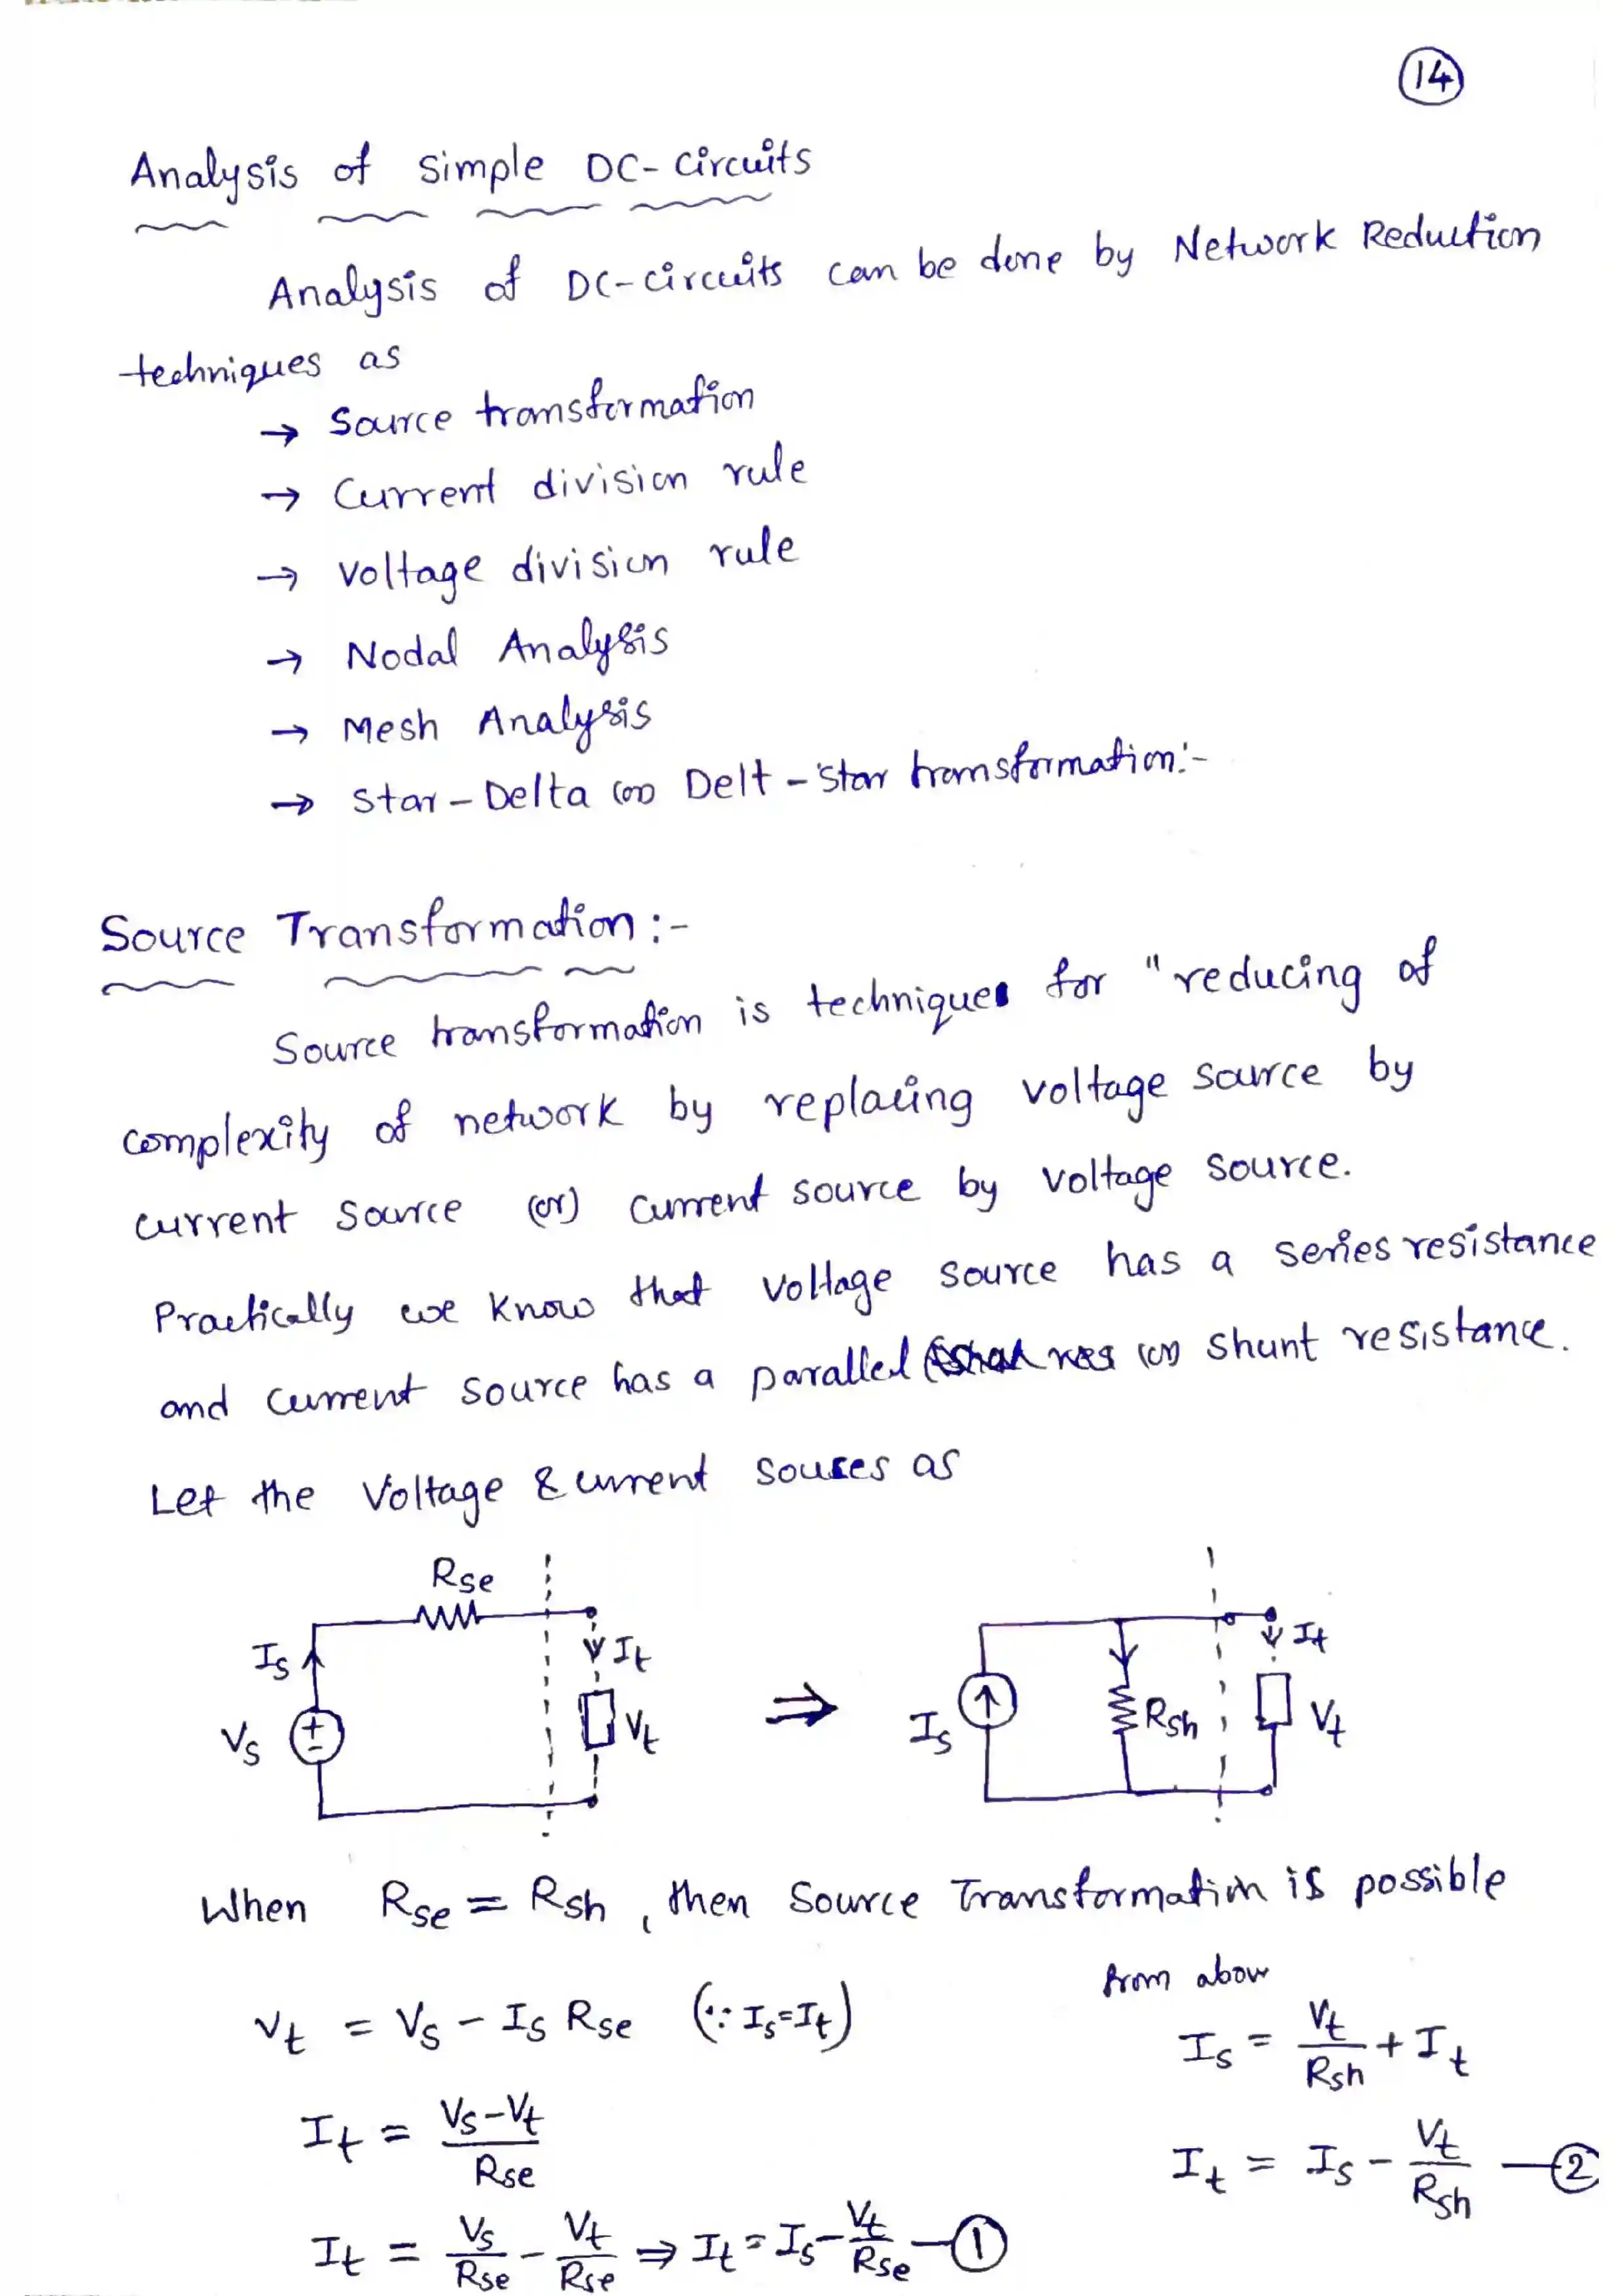 14
Analysis of simple DC-circuits
Analysis of DC-circuits can be done by Network Reduction
techniques as
→ Source transformation
→ Current division rule
→ Voltage division rule
→ Nodal Analysis
→ Mesh Analysis
→ Star-Delta (or) Delt-Star transformation:-
Source Transformation:-
Source transformation is techniques for "reducing of
complexity of network by replacing voltage source by
current source (or) current source by voltage source.
Practically we know that voltage source has a series resistance
and current source has a parallel (or) shunt resistance.
Let the Voltage & current souses as
Rse
Is
Vs
+
-
It
Vt
⇒
Is
Rsh
It
Vt
When Rse = Rsh, then Source Transformation is possible
Vt = Vs - Is Rse (∵ Is=It)
It = (Vs-Vt)/Rse
It = Vs/Rse - Vt/Rse ⇒ It = Is - Vt/Rse —①
from above
Is = Vt/Rsh + It
It = Is - Vt/Rsh —②